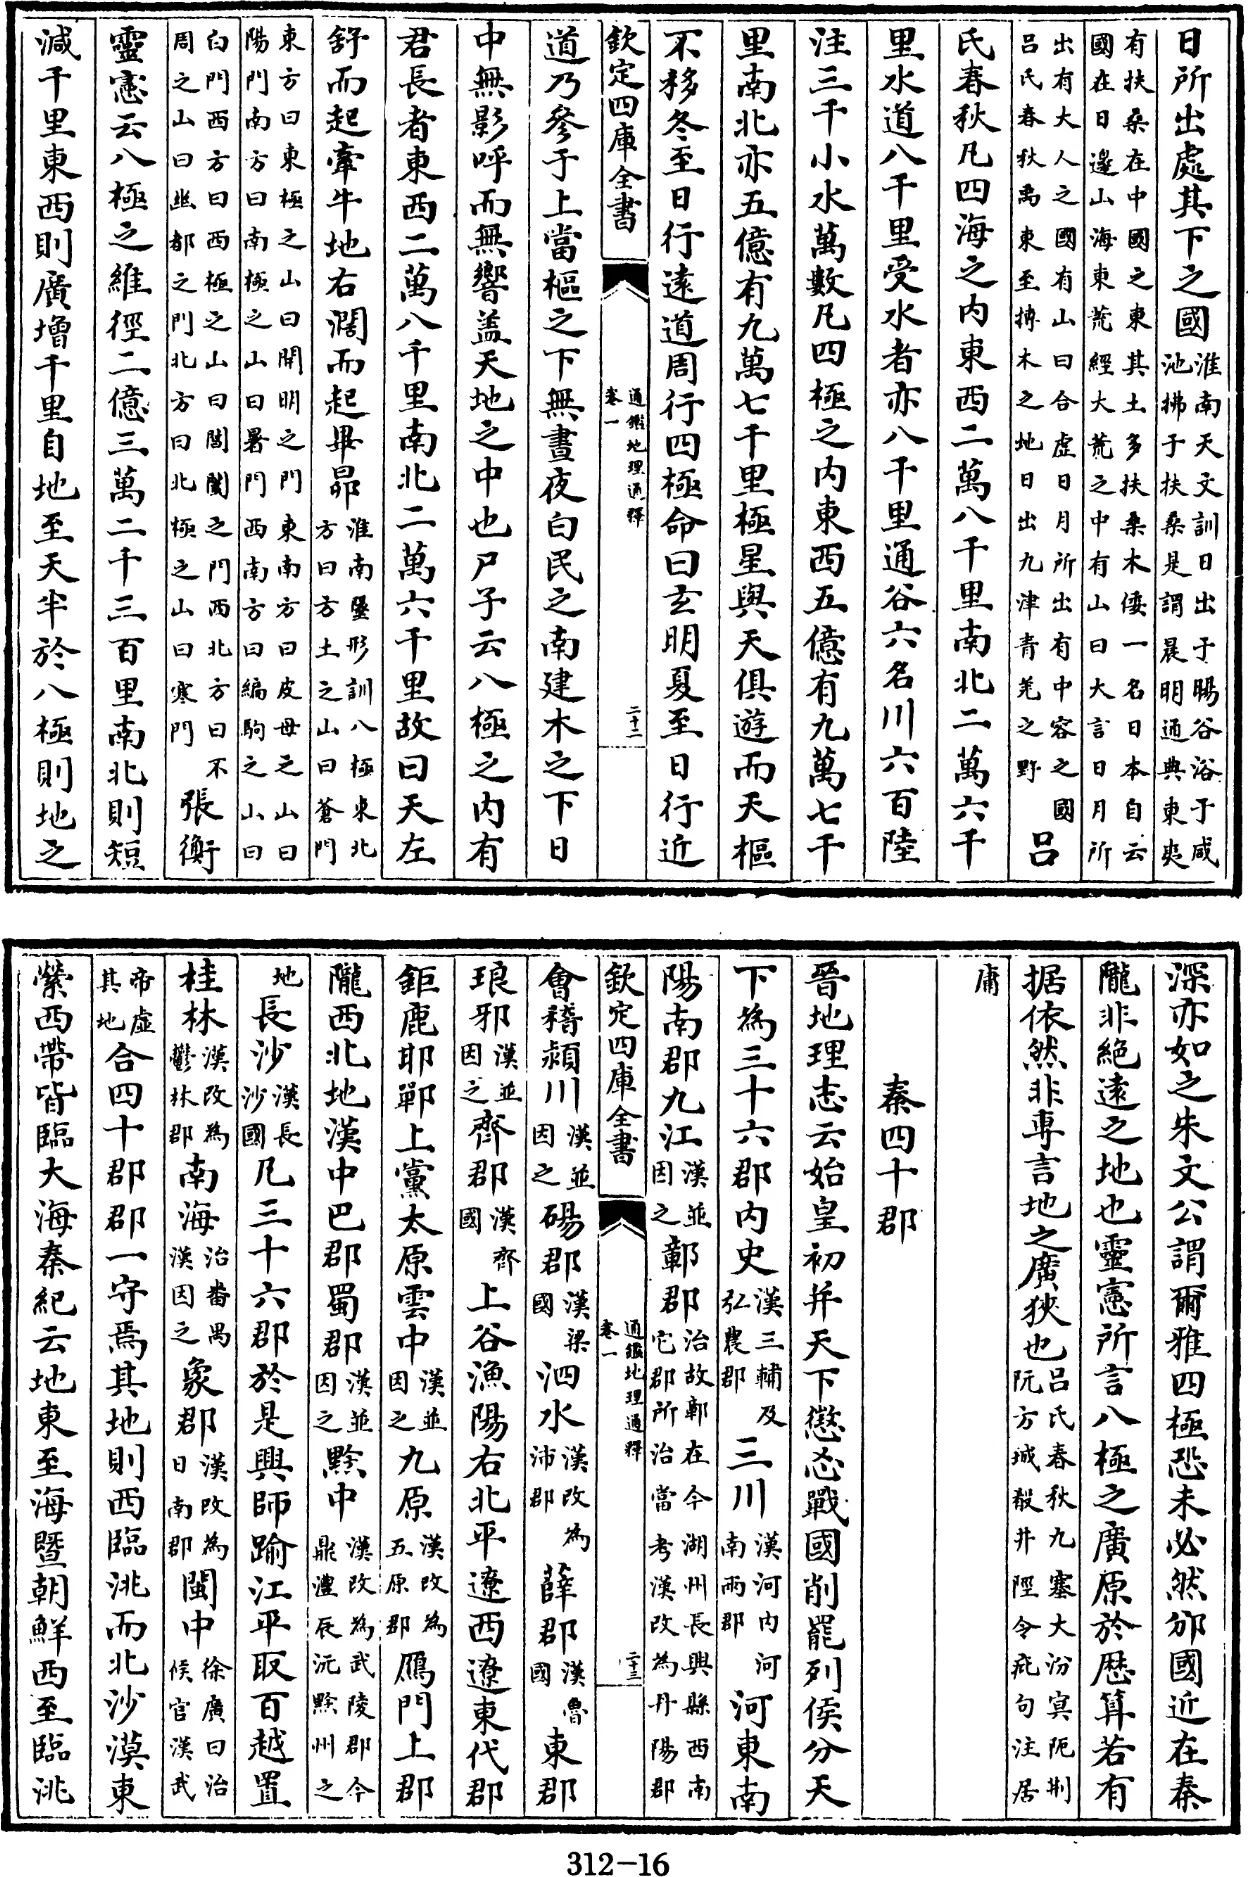 日所出處其下之國淮南天文訓日出于暘谷浴于咸池拂于扶桑是謂晨明通典東夷
有扶桑在中國之東其土多扶桑木倭一名日本自云國在日邊山海東荒經大荒之中有山曰大言日月所
出有大人之國有山曰合虛日月所出有中容之國呂氏春秋禹東至搏木之地日出九津青羌之野呂
氏春秋凡四海之內東西二萬八千里南北二萬六千
里水道八千里受水者亦八千里通谷六名川六百陸
注三千小水萬數凡四極之內東西五億有九萬七千
里南北亦五億有九萬七千里極星與天俱遊而天樞
不移冬至日行遠道周行四極命曰玄明夏至日行近
欽定四庫全書 通鑑地理通釋卷一 二十二
道乃參于上當樞之下無晝夜白民之南建木之下日
中無影呼而無響蓋天地之中也尸子云八極之內有
君長者東西二萬八千里南北二萬六千里故曰天左
舒而起牽牛地右闢而起畢昴淮南墬形訓八極東北方曰方土之山曰蒼門
東方曰東極之山曰開明之門東南方曰波母之山曰陽門南方曰南極之山曰暑門西南方曰編駒之山曰
白門西方曰西極之山曰閶闔之門西北方曰不周之山曰幽都之門北方曰北極之山曰寒門張衡
靈憲云八極之維徑二億三萬二千三百里南北則短
減千里東西則廣增千里自地至天半於八極則地之
深亦如之朱文公謂爾雅四極恐未必然邠國近在秦
隴非絕遠之地也靈憲所言八極之廣原於厯算若有
据依然非專言地之廣狹也呂氏春秋九塞大汾冥阨荆阮方城殽井陘令疵句注居
庸
秦四十郡
晉地理志云始皇初并天下懲忿戰國削罷列侯分天
下為三十六郡內史漢三輔及弘農郡三川漢河內河南兩郡河東南
陽南郡九江漢並因之鄣郡治故鄣在今湖州長興縣西南它郡所治當考漢改為丹陽郡
欽定四庫全書 通鑑地理通釋卷一 二十三
會稽潁川漢並因之碭郡漢梁國泗水漢改為沛郡薛郡漢魯國東郡
琅邪漢並因之齊郡漢齊國上谷漁陽右北平遼西遼東代郡
鉅鹿邯鄲上黨太原雲中漢並因之九原漢改為五原郡鴈門上郡
隴西北地漢中巴郡蜀郡漢並因之黔中漢改為武陵郡今鼎澧辰沅黔州之
地長沙漢長沙國凡三十六郡於是興師踰江平取百越置
桂林漢改為鬱林郡南海治番禺漢因之象郡漢改為日南郡閩中徐廣曰治候官漢武
帝虛其地合四十郡郡一守焉其地則西臨洮而北沙漠東
縈西帶皆臨大海秦紀云地東至海暨朝鮮西至臨洮
312-16